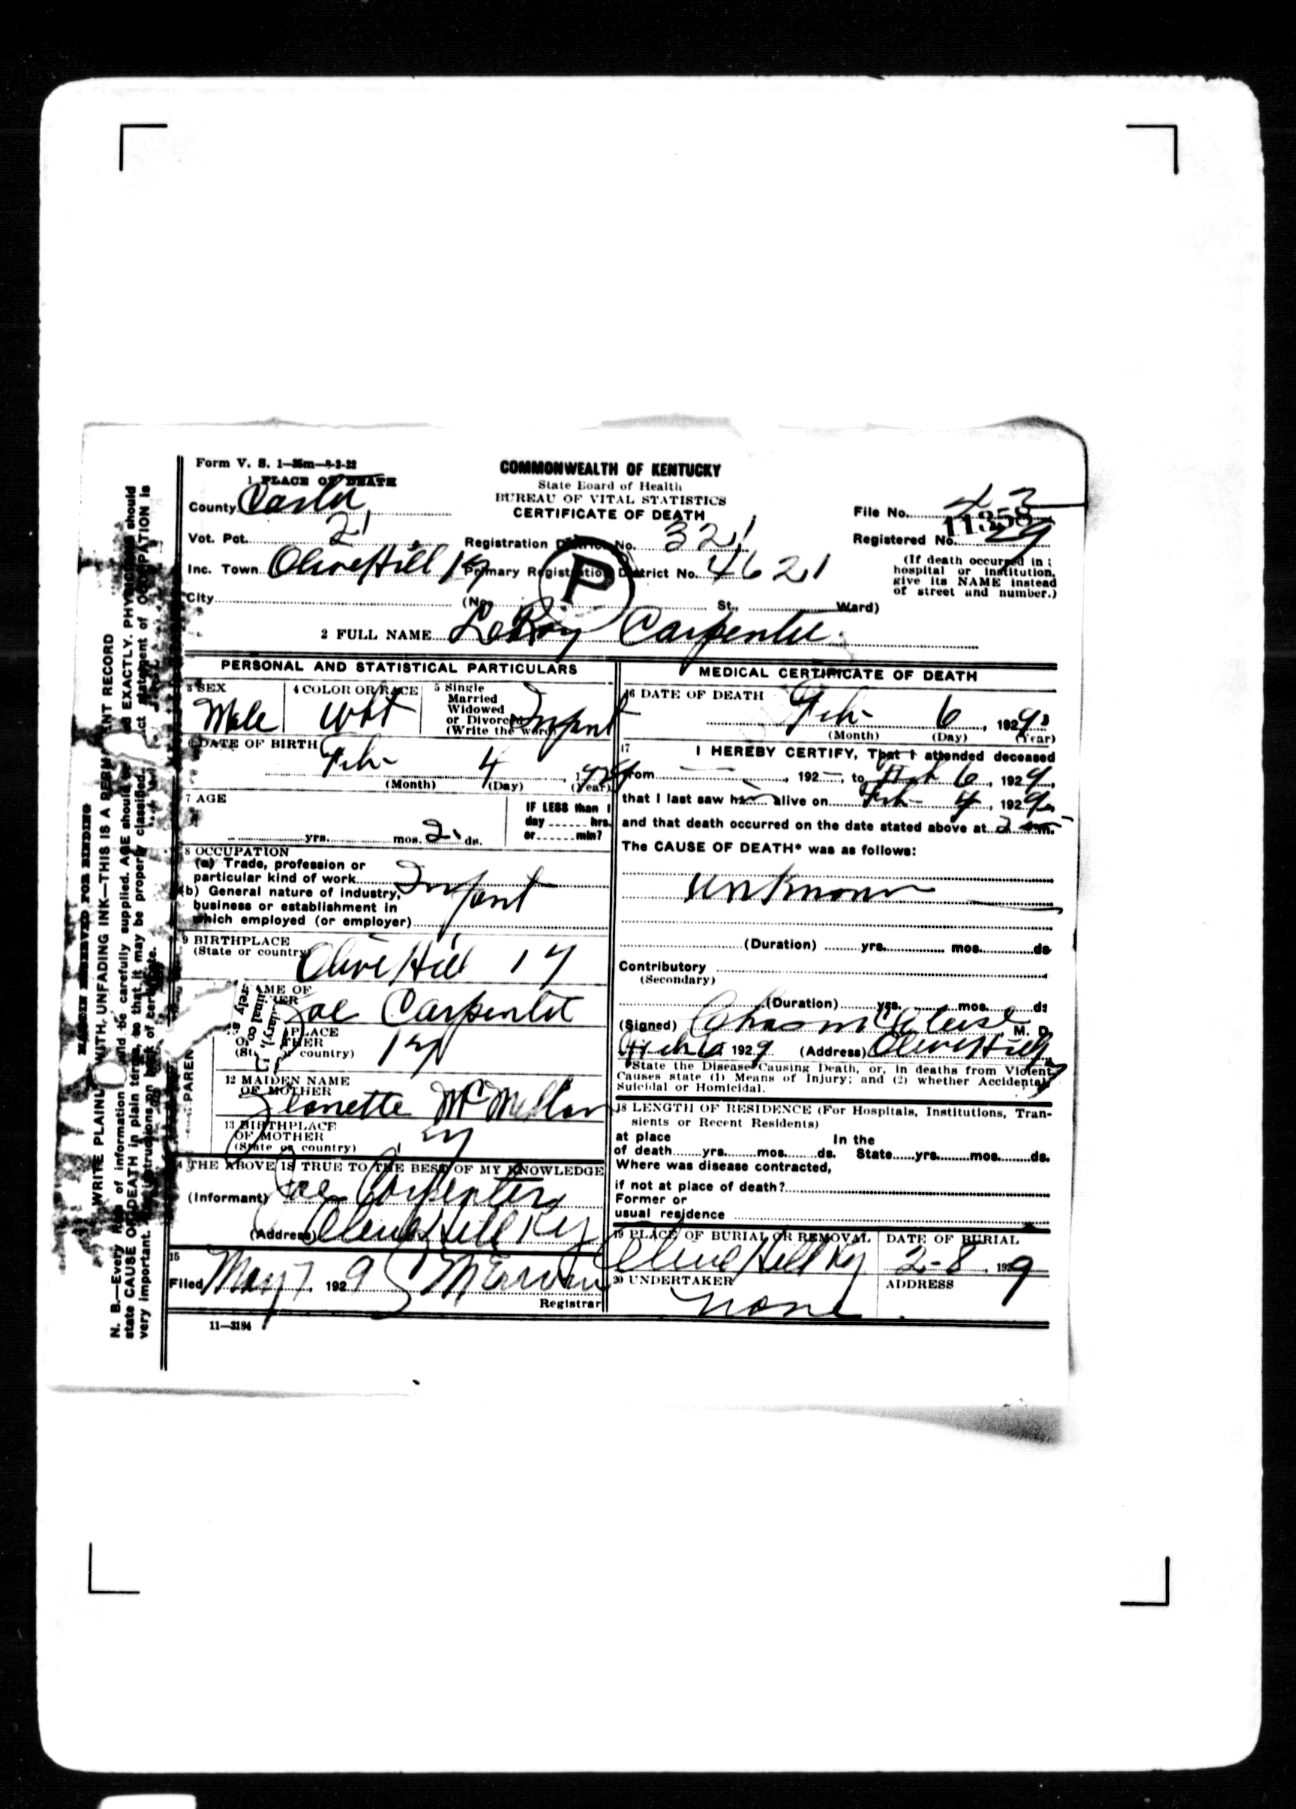 Form V. S. 1—25m—8-3-22
COMMONWEALTH OF KENTUCKY
State Board of Health
BUREAU OF VITAL STATISTICS
CERTIFICATE OF DEATH
1 PLACE OF DEATH
County Carter
Vot. Pct. 21
Inc. Town Olive Hill Ky
City (No. St., Ward)
Registration District No. 321
Primary Registration District No. 4621
P
File No. 11358
Registered No. 29
(If death occurred in a
hospital or institution,
give its NAME instead
of street and number.)
2 FULL NAME LeRoy Carpenter
PERSONAL AND STATISTICAL PARTICULARS
3 SEX
Male
4 COLOR OR RACE
Wht
5 Single
Married
Widowed
or Divorced
(Write the word)
Infant
6 DATE OF BIRTH
Feb- 4 1929
(Month) (Day) (Year)
7 AGE
yrs. mos. 2 ds.
IF LESS than 1
day hrs.
or min?
8 OCCUPATION
(a) Trade, profession or
particular kind of work Infant
(b) General nature of industry,
business or establishment in
which employed (or employer)
9 BIRTHPLACE
(State or country)
Olive Hill Ky
AME OF
HER
Joe Carpenter
PLACE
OF HER
(St or country)
Ky
PAREN
12 MAIDEN NAME
OF MOTHER
Jeanette McMellon
13 BIRTHPLACE
OF MOTHER
(State or country)
Ky
THE ABOVE IS TRUE TO THE BEST OF MY KNOWLEDGE
(Informant) Joe Carpenter
(Address) Olive Hill Ky
15
Filed May 7 1929
Registrar
11—3184
MEDICAL CERTIFICATE OF DEATH
16 DATE OF DEATH
Feb- 6, 1929
(Month) (Day) (Year)
17
I HEREBY CERTIFY, That I attended deceased
from , 192 , to Feb 6, 1929,
that I last saw him alive on Feb- 4, 1929,
and that death occurred on the date stated above at 2 m.
The CAUSE OF DEATH* was as follows:
unknown
(Duration) yrs. mos. ds
Contributory
(Secondary)
(Duration) yrs. mos. ds
(Signed) Chas M M. D.
Feb 6 1929 (Address) Olive Hill Ky
*State the Disease Causing Death, or, in deaths from Violent
Causes state (1) Means of Injury; and (2) whether Accidental,
Suicidal or Homicidal.
18 LENGTH OF RESIDENCE (For Hospitals, Institutions, Tran-
sients or Recent Residents)
at place In the
of death yrs. mos. ds. State yrs. mos. ds.
Where was disease contracted,
if not at place of death?
Former or
usual residence
19 PLACE OF BURIAL OR REMOVAL
Olive Hill Ky
DATE OF BURIAL
2-8 1929
20 UNDERTAKER
none
ADDRESS
MARGIN RESERVED FOR BINDING
WRITE PLAINLY WITH UNFADING INK—THIS IS A PERMANENT RECORD
N. B.—Every item of information should be carefully supplied. AGE should be EXACTLY. PHYSICIANS should
state CAUSE OF DEATH in plain terms, so that it may be properly classified. ct statement of OCCUPATION is
very important. instructions on back of certificate.